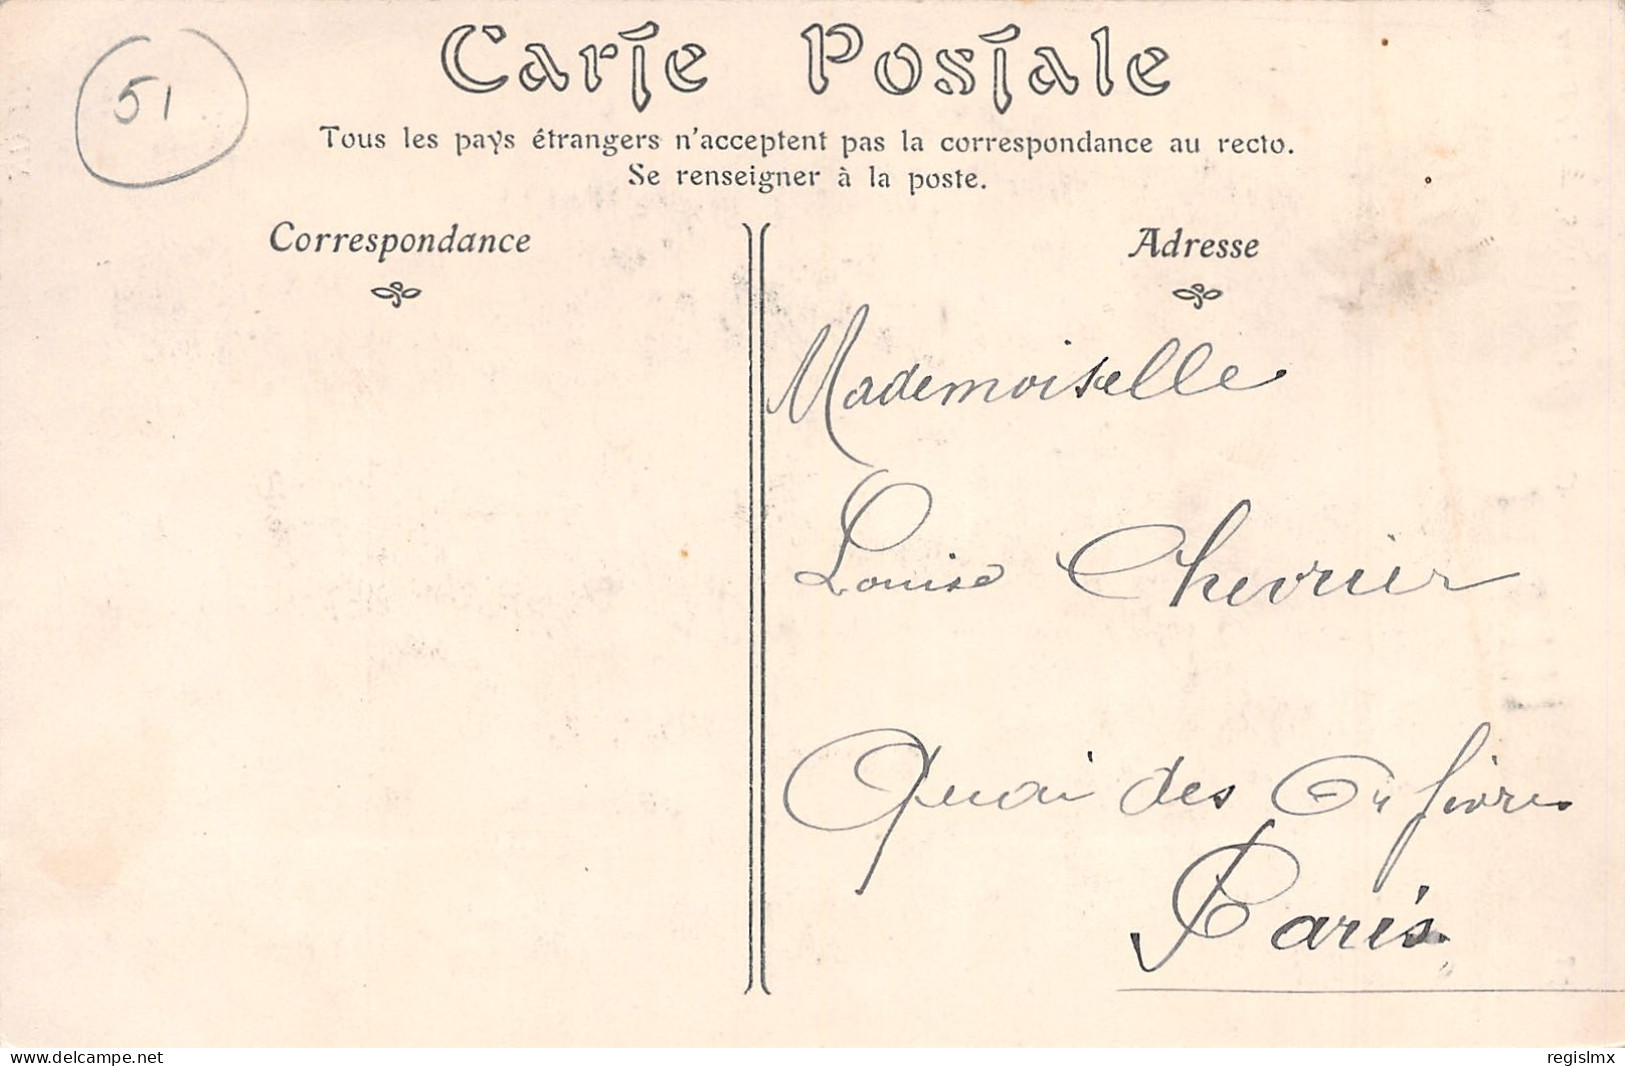 51
Carte Postale
Tous les pays étrangers n'acceptent pas la correspondance au recto.
Se renseigner à la poste.
Correspondance
Adresse
Mademoiselle
Louise Chevrier
Quai des Orfèvres
Paris
www.delcampe.net
regislmx